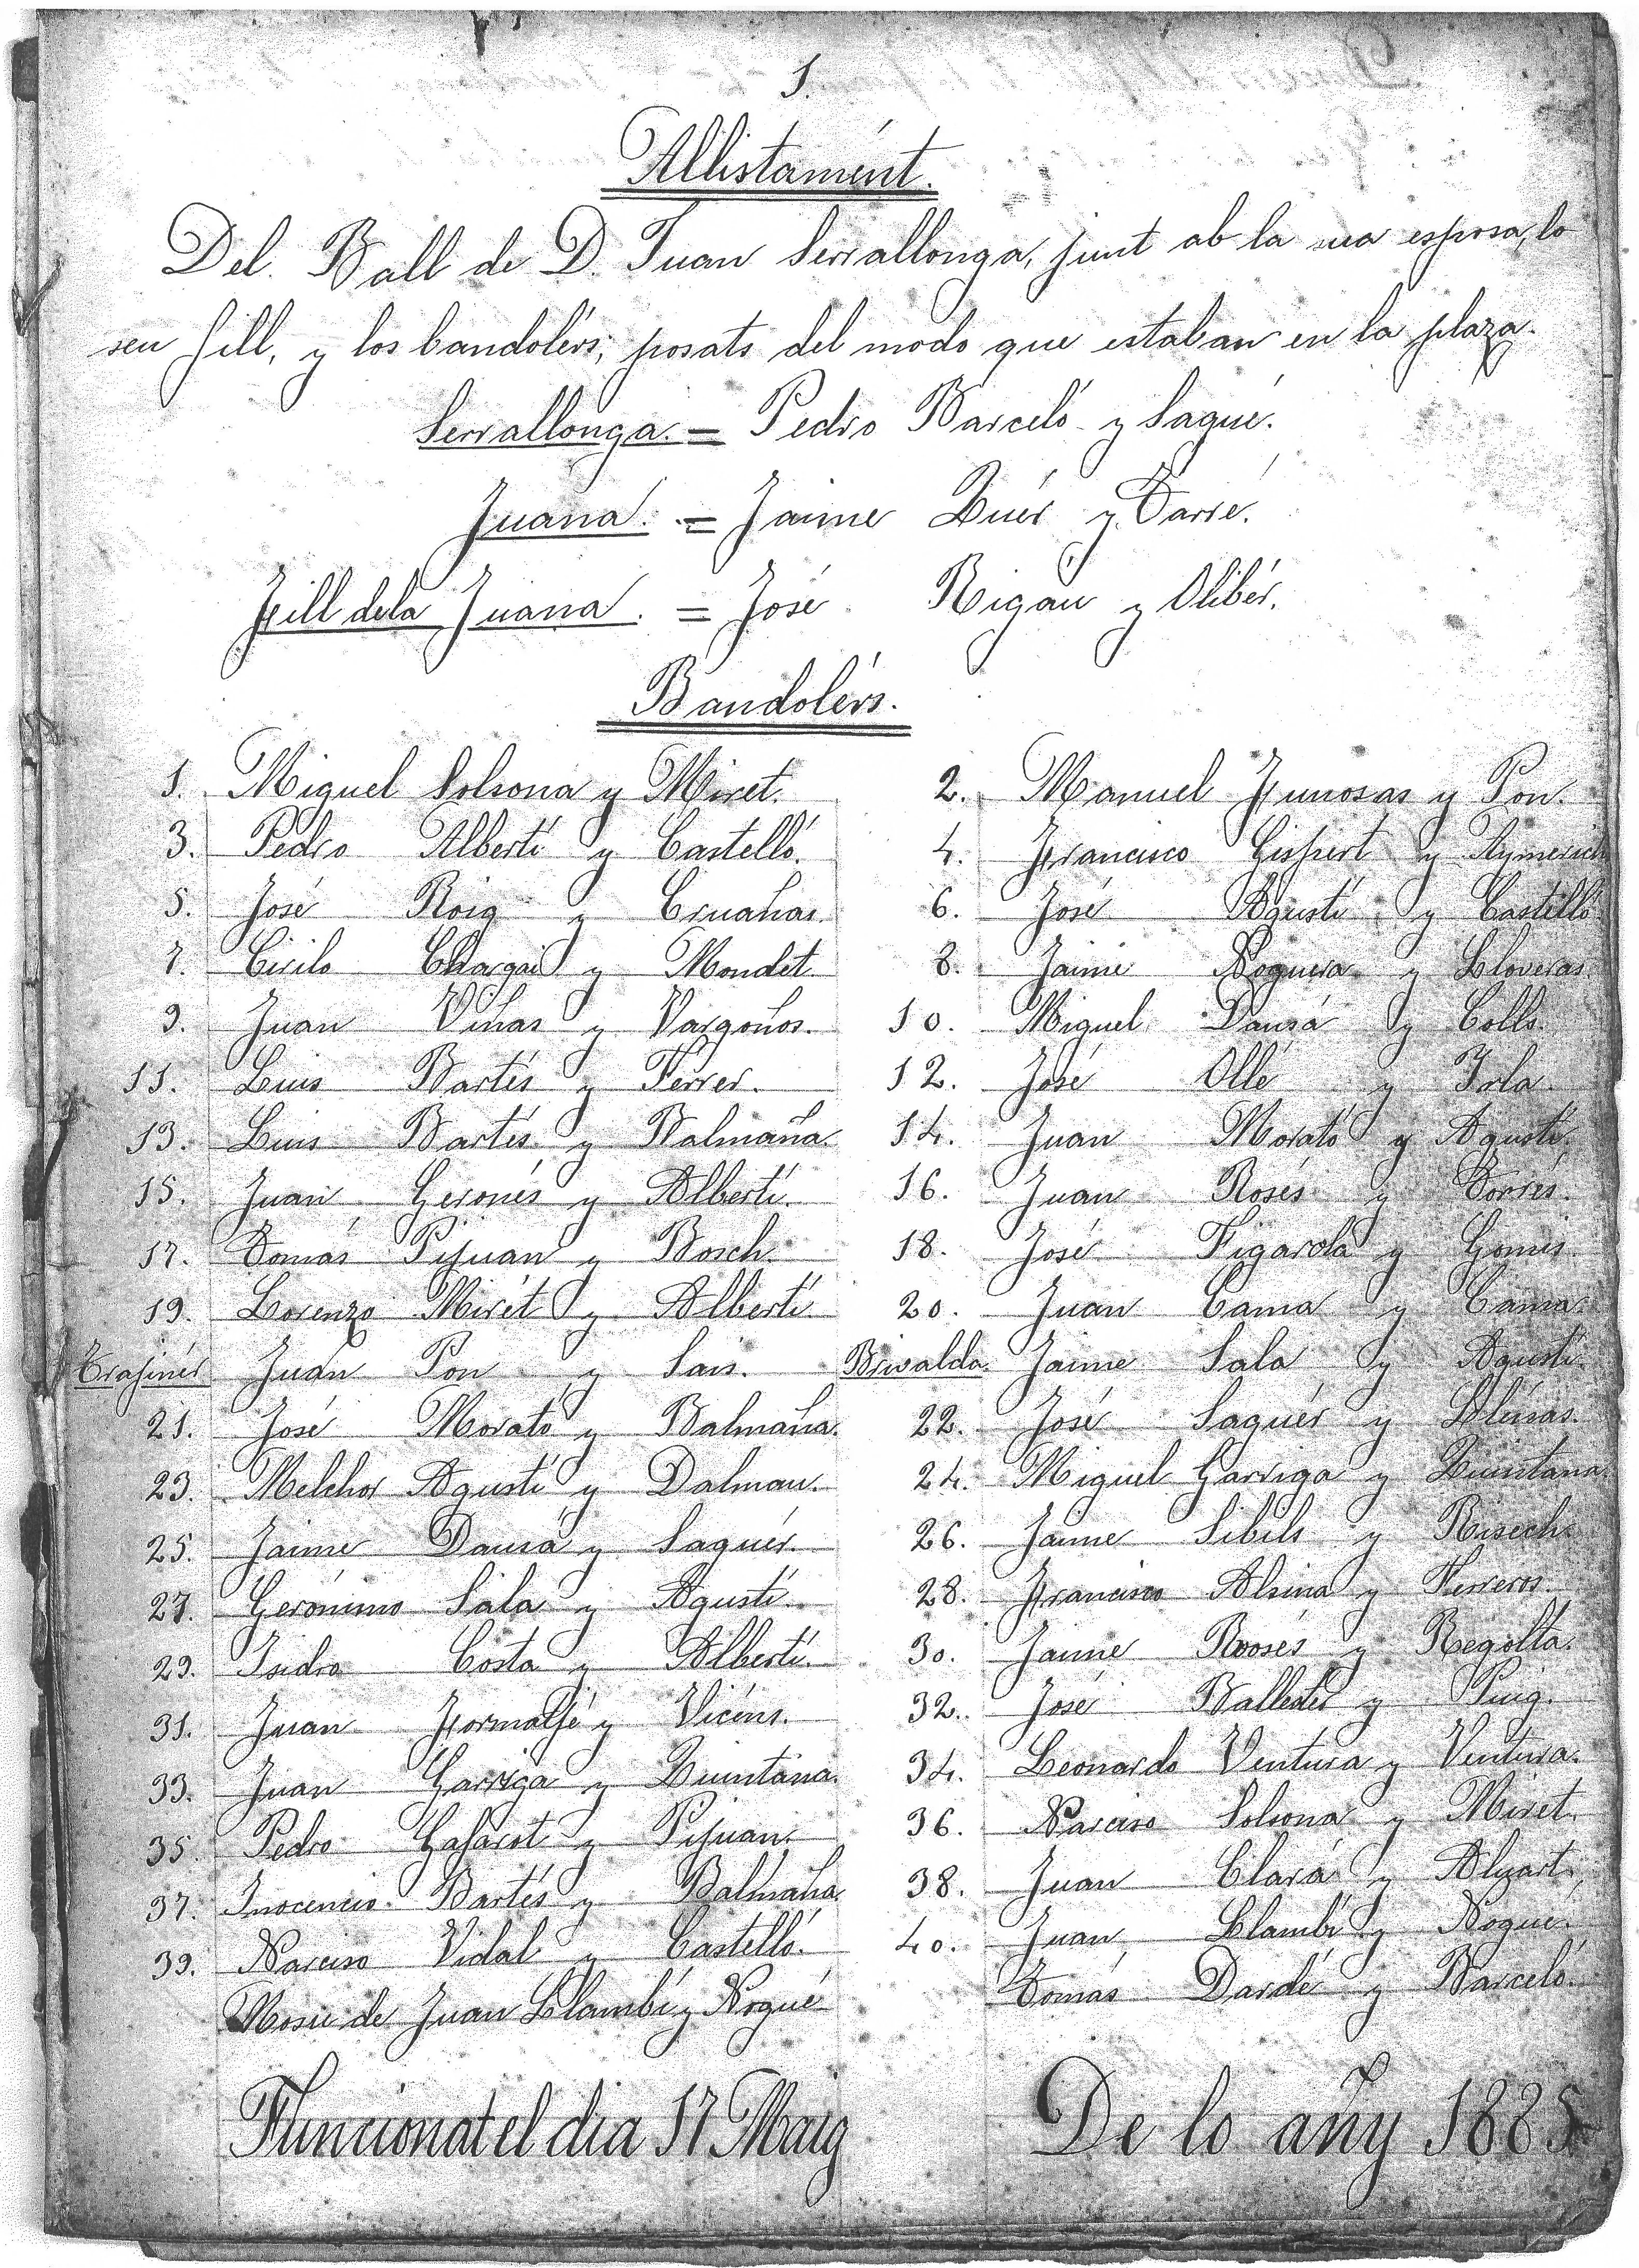 1.
Allistamént.
Del. Ball de D. Juan Serrallonga, junt ab la sua esposa, lo
seu fill, y los bandolérs, posats del modo que estaban en la plaza.
Serrallonga. = Pedro Barceló y Sagué.
Juana. = Jaime Quér y Tarré.
Fill de la Juana. = José Rigáu y Olibér.
Bandolérs.
1. Miguel Solsona y Miret. 2. Manuel Junosas y Pon.
3. Pedro Albertí y Castelló. 4. Francisco Gispert y Aymerich
5. José Roig y Cruañas. 6. José Agustí y Castelló
7. Cirilo y Mondet. 8. Jaime Noguera y Lloveras.
9. Juan Viñas y Vargoños. 10. Miguel Dausá y Colls.
11. Luis Bartés y Ferrer. 12. José Ollé y Irla.
13. Luis Bartés y Balmaña. 14. Juan Morató y Agustí.
15. Juan Geronés y Albertí. 16. Juan Rosés y Torrés.
17. Tomás Pijuan y Bosch. 18. José Figarola y Gomis.
19. Lorenzo Mirét y Albertí. 20. Juan Cama y Cama.
Trajinér Juan Pon y Sais. Brivalda. Jaime Sala y Agustí.
21. José Morató y Balmaña. 22. José Saguér y Llenas.
23. Melchor Agustí y Dalmau. 24. Miguel Garriga y Quintana.
25. Jaime Dausá y Saguér. 26. Jaime Sibils y Risech.
27. Gerónimo Sala y Agustí. 28. Francisco Alsina y Ferreros.
29. Isidro Costa y Albertí. 30. Jaime Roosés y Regolta.
31. Juan Formatjé y Vicéns. 32. José Ballester y Puig.
33. Juan Garriga y Quintana. 34. Leonardo Ventura y Ventura.
35. Pedro Gafarot y Pijuan. 36. Narciso Solsona y Miret.
37. Inocencio Bartés y Balmaña 38. Juan Clará y Aluart.
39. Narciso Vidal y Castelló. 40. Juan Llambí y Nogué.
Mosu de Juan Llambí y Nogué Tomás Dardé y Barceló.
Funcionat el dia 17 Maig De lo añy 1885